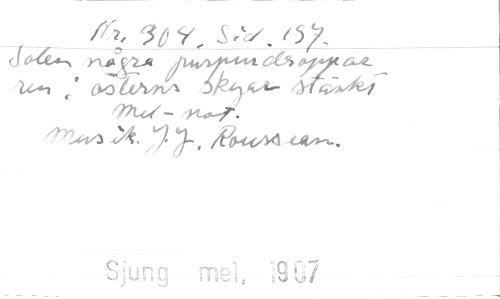 Nr. 304. Sid. 157.
Solen några purpurdroppar
ren i österns skyar stänkt
Mel-not.
Musik. J.J. Rousseau.
Sjung mel. 1907